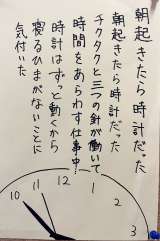 朝起きたら時計だった
朝起きたら時計だった
チクタクと三つの針が働いて
時間をあらわす仕事中
時計はずっと動くから
寝るひまがないことに
気付いた
10
11
12
1
2
3